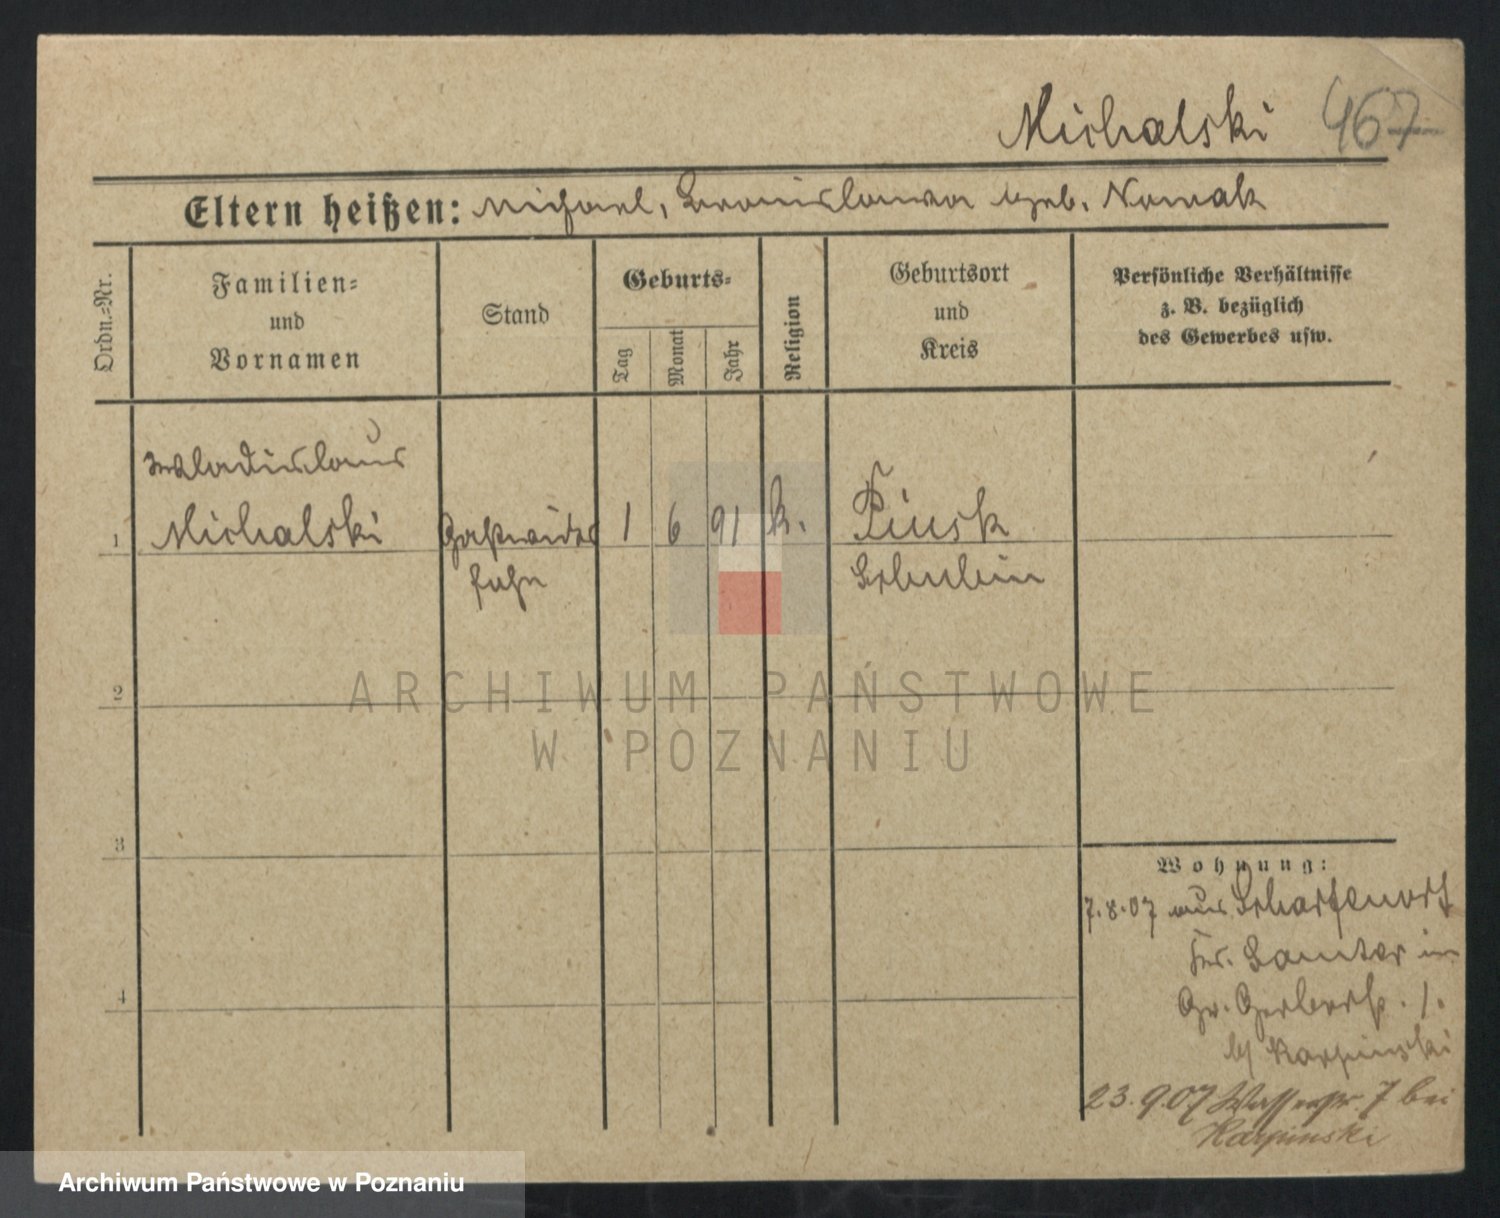 Michalski 467
Eltern heißen: Michael, Bronislawa geb. Nowak
Ordn.=Nr.
Familien=
und
Vornamen
Stand
Geburts=
Tag
Monat
Jahr
Religion
Geburtsort
und
Kreis
Persönliche Verhältnisse
z. B. bezüglich
des Gewerbes usw.
Wladislaus
1 Michalski
1 6 91 k.
Pinsk
Schubin
2
ARCHIWUM PAŃSTWOWE
W POZNANIU
3
4
Wohnung:
7.8.07 aus Scharfenort
Krs. Samter in
Gr. Gerberstr. 1.
b/ Karpinski
23.9.07 Wasserstr. 7 bei
Karpinski
Archiwum Państwowe w Poznaniu